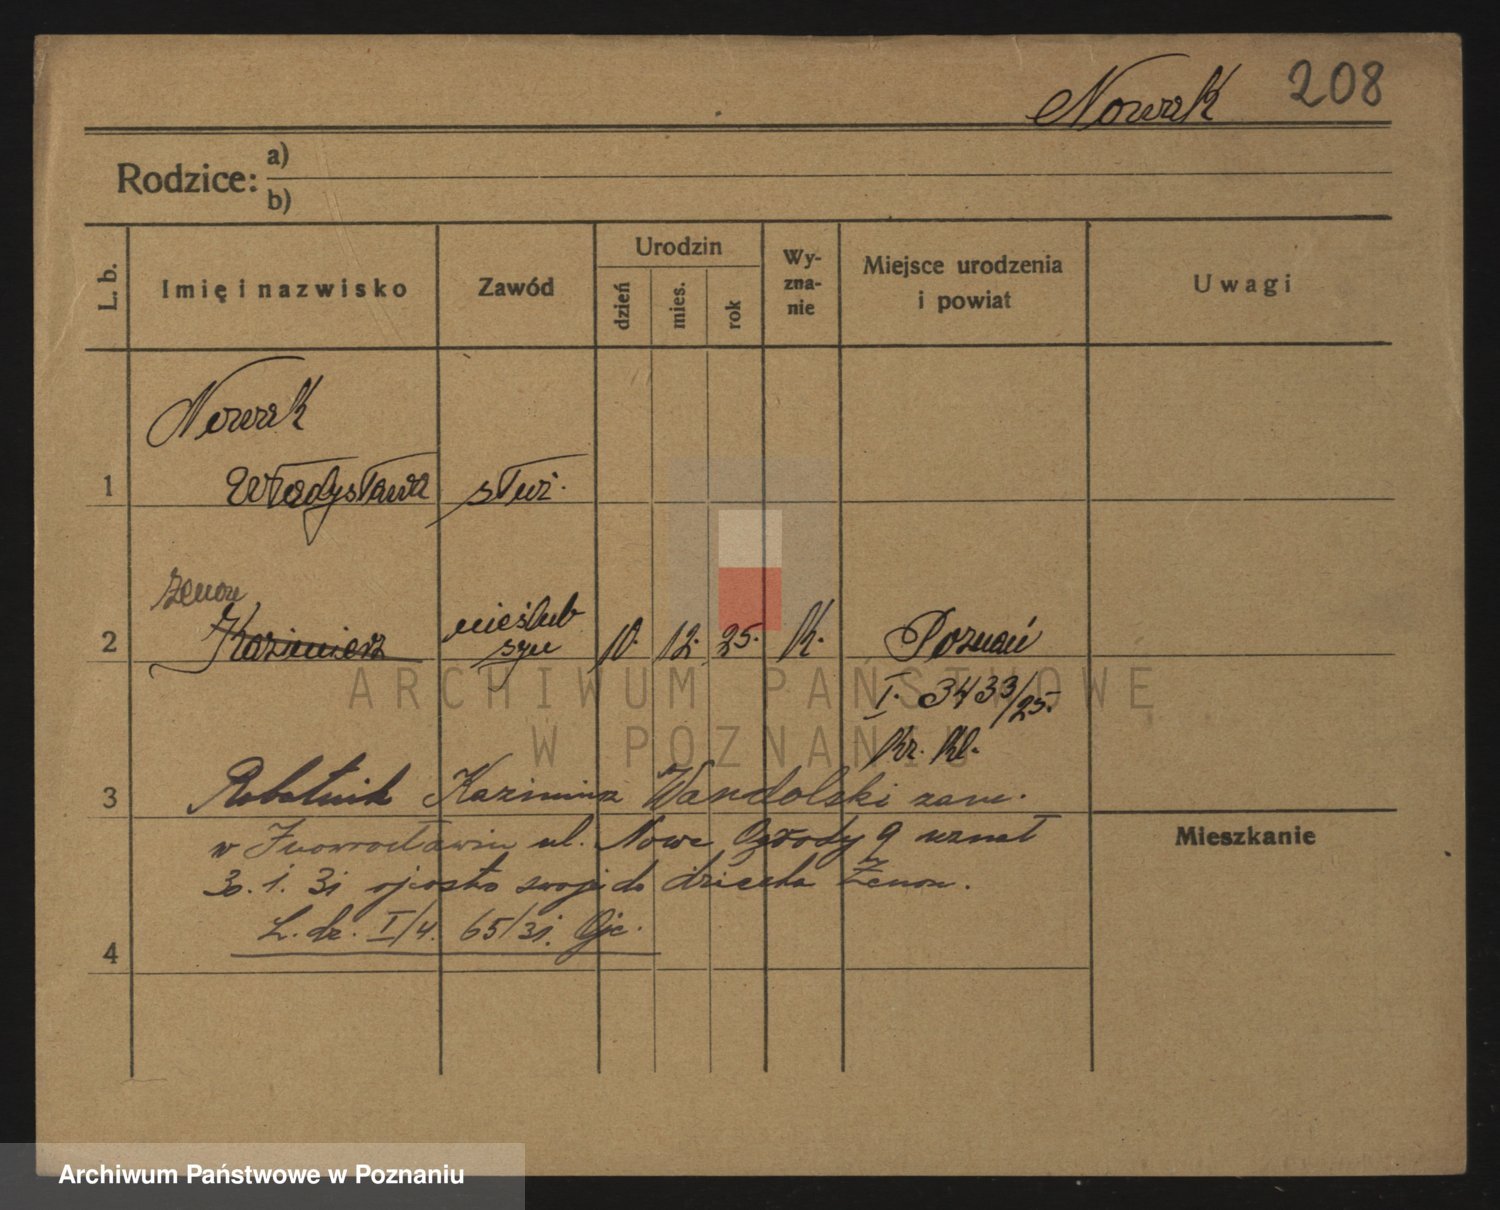 Nowak 208
Rodzice: a)
b)
L. b. Imię i nazwisko Zawód Urodzin dzień mies. rok Wy-zna-nie Miejsce urodzenia i powiat Uwagi
Nowak
1 Władysława służ.
Zenon
2 Kazimierz nieślub syn 10. 12. 25. K. Poznań
I. 3433/25.
Kr. Kl.
3 Robotnik Kazimierz Wandolski zam.
Mieszkanie
w Inowrocławiu ul. Nowe Ogrody 9 uznał
30. 1. 31 ojcostwo swoje do dziecka Zenon.
L. dz. I/4. 65/31. Ojc.
4
ARCHIWUM PAŃSTWOWE
W POZNANIU
Archiwum Państwowe w Poznaniu